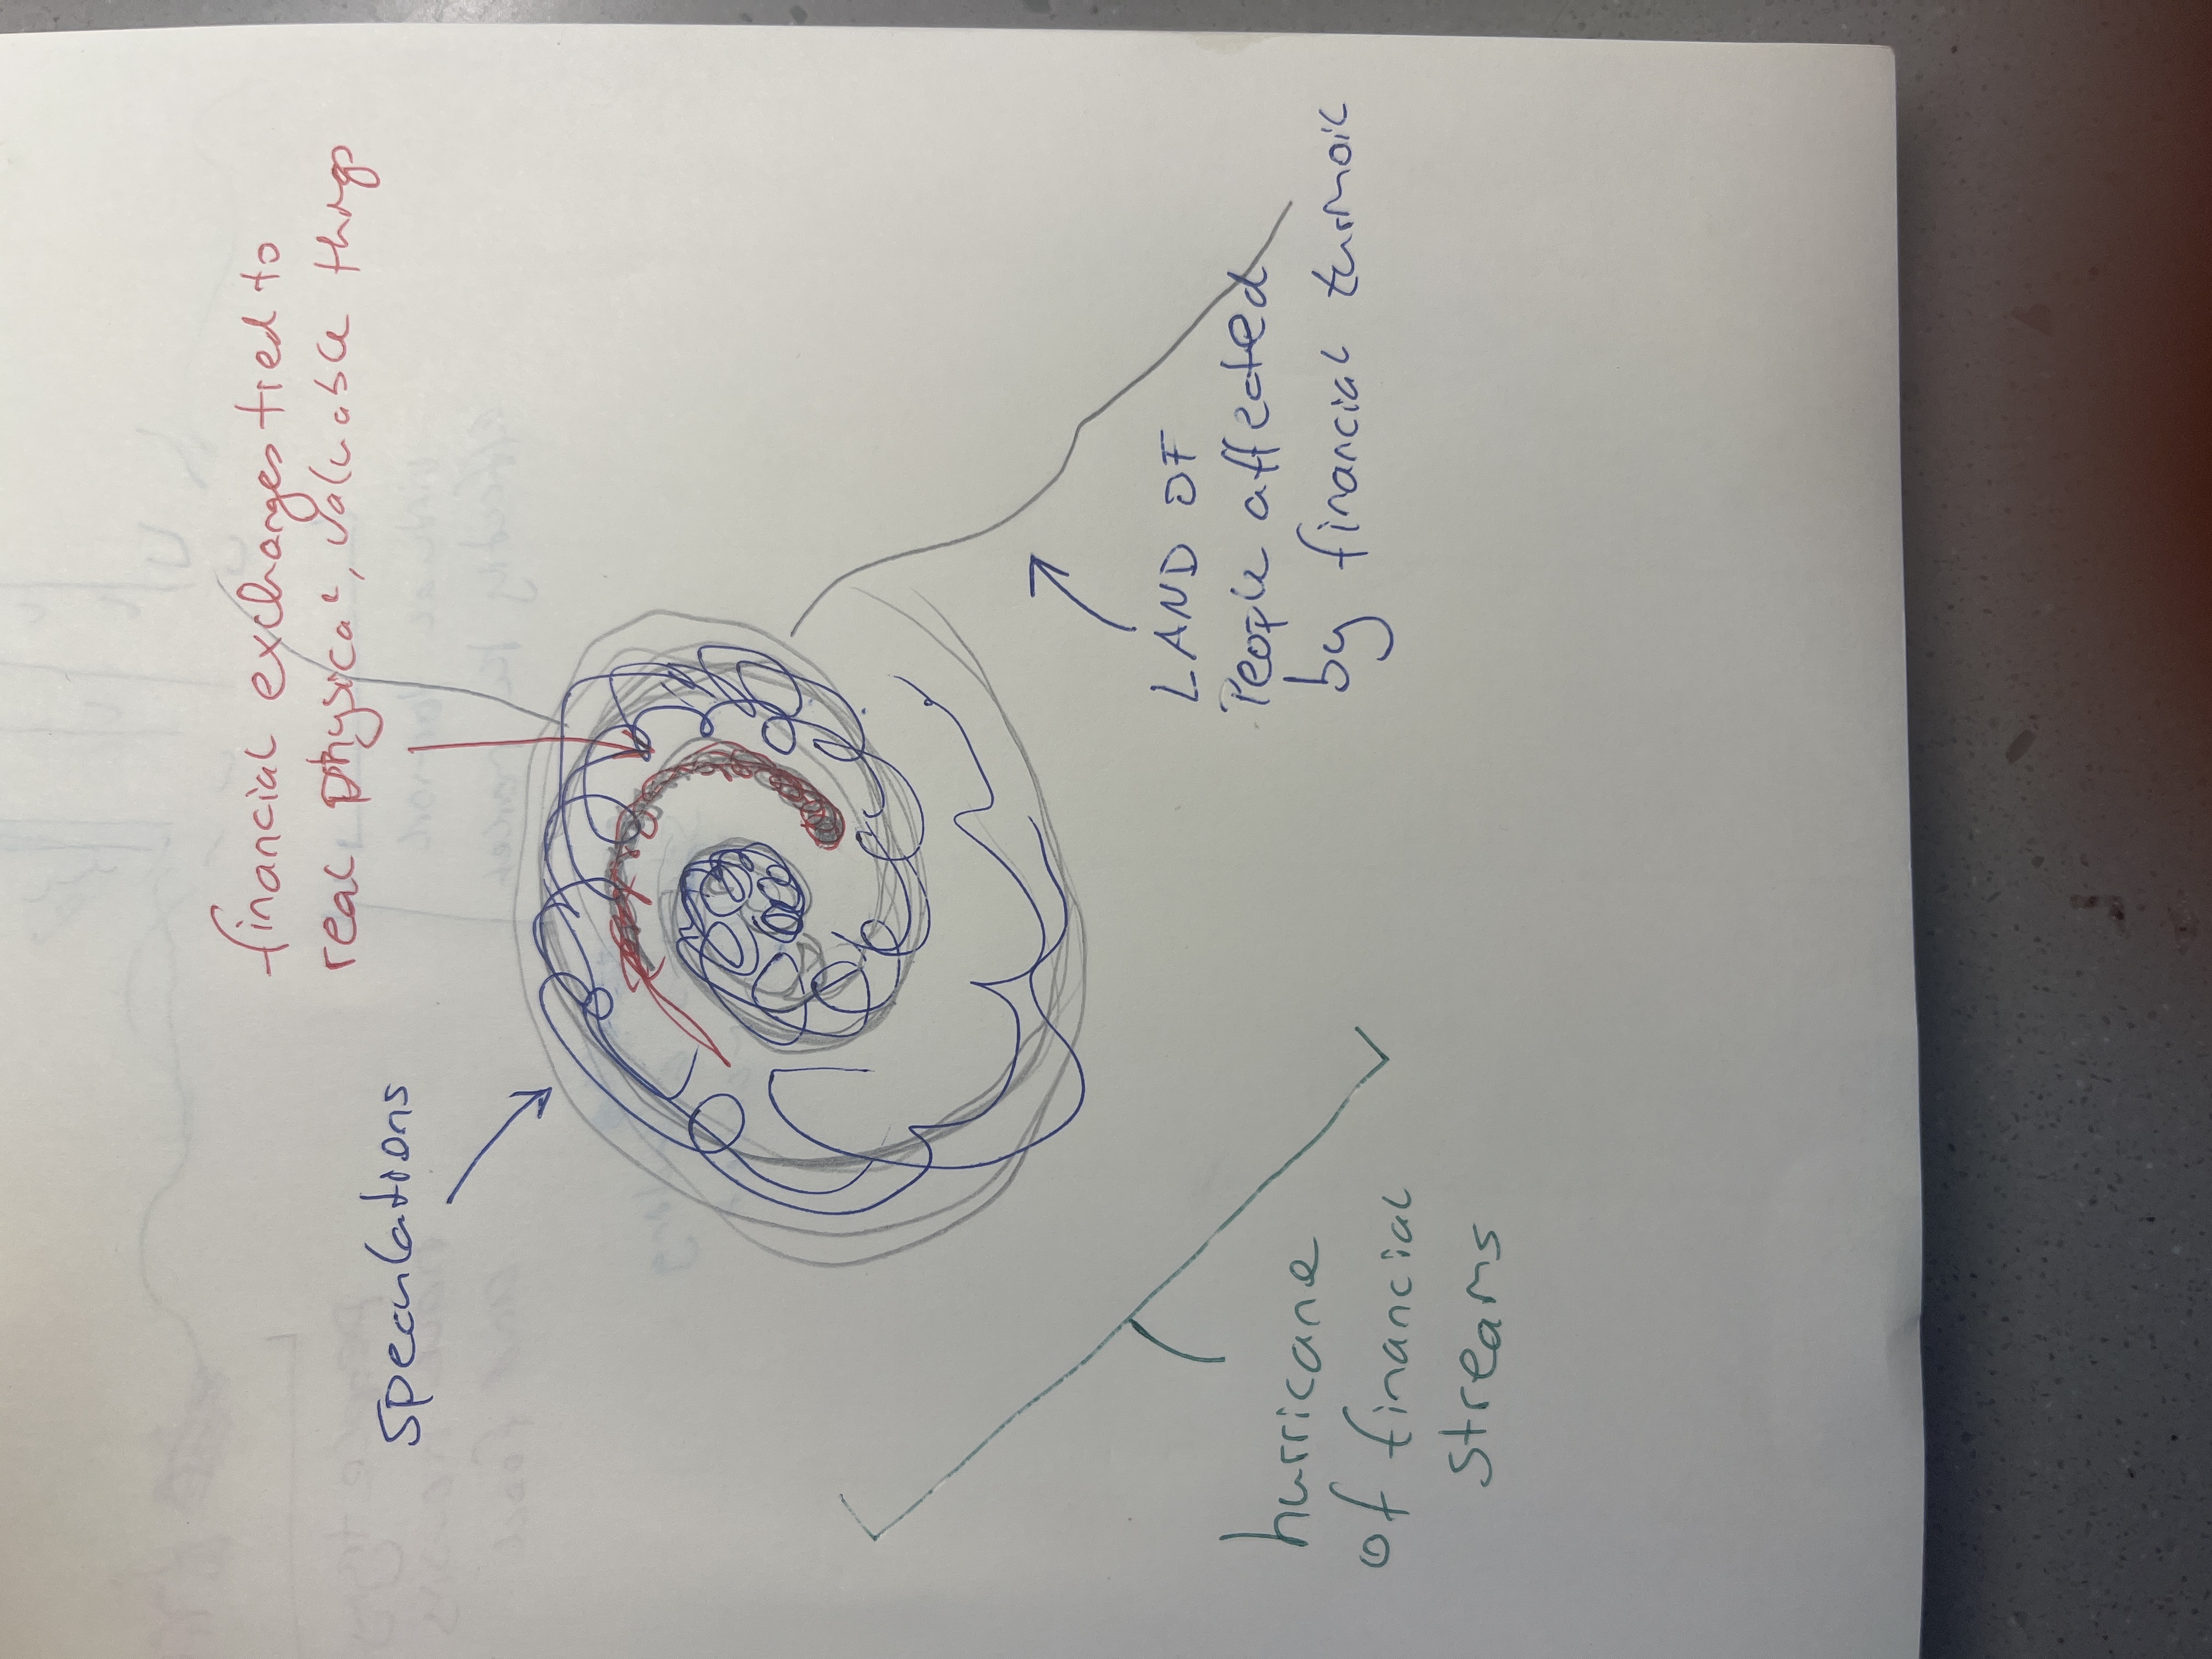 financial exchanges tied to
real physical, valuable things
Speculations
LAND OF
People affected
by financial turmoil
hurricane
of financial
streams